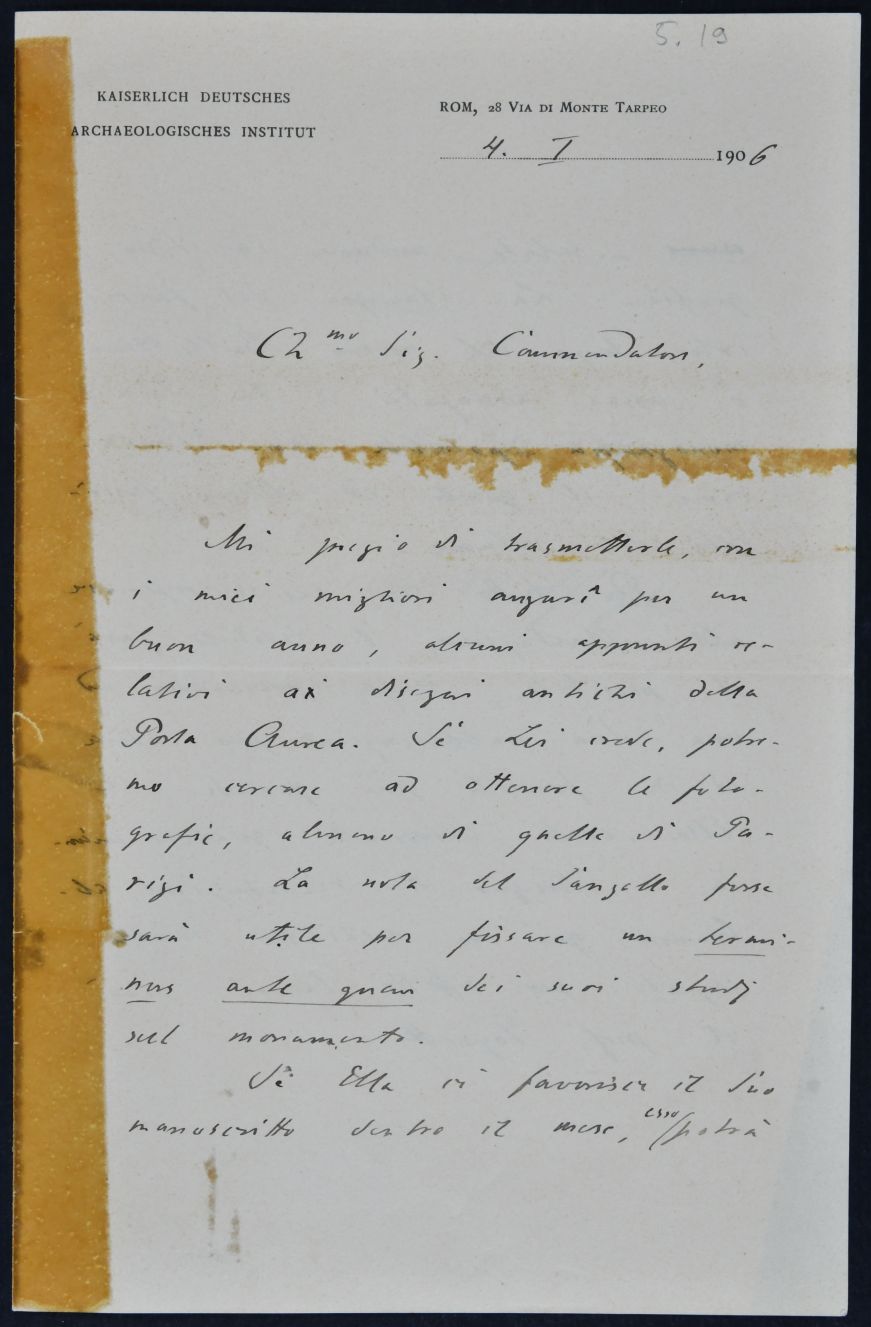 5. 19
KAISERLICH DEUTSCHES
ARCHAEOLOGISCHES INSTITUT
ROM, 28 VIA DI MONTE TARPEO
4. I 1906
Ch.mo Sig. Commendatore,
Mi pregio di trasmetterle, con
i miei migliori augurî per un
buon anno, alcuni appunti re-
lativi ai disegni antichi della
Porta Aurea. Se Lei crede, potre-
mo cercare ad ottenere le foto-
grafie, almeno di quelle di Pa-
rigi. La nota del Sangallo forse
sarà utile per fissare un termi-
nus ante quem dei suoi studj
sul monumento.
Se Ella ci favorisce il Suo
manoscritto dentro il mese, esso potrà